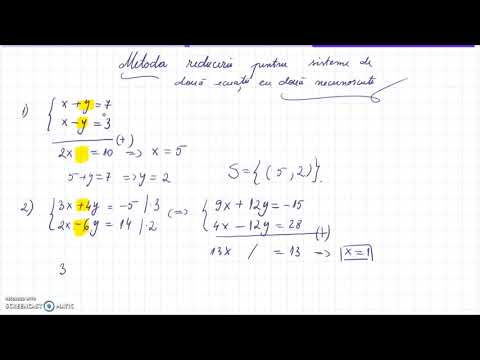 Metoda reducerii pentru sisteme de
două ecuații cu două necunoscute
1) { x + y = 7
x - y = 3
(+)
2x = 10 => x = 5
5 + y = 7 => y = 2
S = {(5, 2)}.
2) { 3x + 4y = -5 | · 3 (=> { 9x + 12y = -15
2x - 6y = 14 | · 2 4x - 12y = 28
(+)
13x / = 13 => x = 1
3
RECORDED WITH
SCREENCAST-O-MATIC